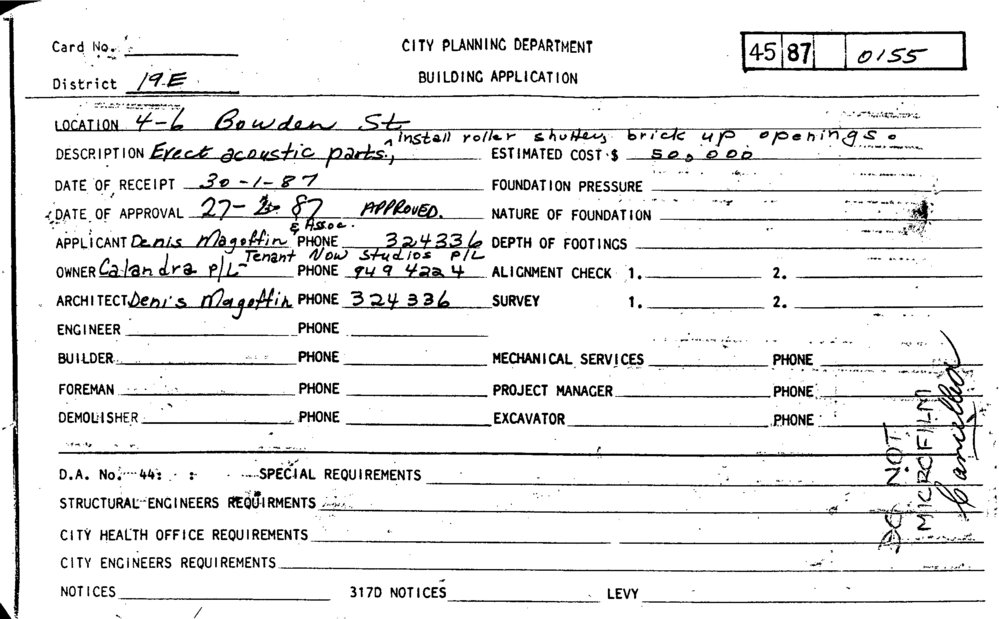 Card No. CITY PLANNING DEPARTMENT 45 87 0155
District 19.E BUILDING APPLICATION
LOCATION 4-6 Bowden St
DESCRIPTION Erect acoustic parts., install roller shutters brick up openings. ESTIMATED COST $ 50,000
DATE OF RECEIPT 30-1-87 FOUNDATION PRESSURE
DATE OF APPROVAL 27- 87 APPROVED. NATURE OF FOUNDATION
APPLICANT Denis Magoffin & Assoc. PHONE 324336 DEPTH OF FOOTINGS
OWNER Calandra P/L - Tenant Now Studios P/L PHONE 949 4224 ALIGNMENT CHECK 1. 2.
ARCHITECT Denis Magoffin PHONE 324336 SURVEY 1. 2.
ENGINEER PHONE
BUILDER PHONE MECHANICAL SERVICES PHONE
FOREMAN PHONE PROJECT MANAGER PHONE
DEMOLISHER PHONE EXCAVATOR PHONE
D.A. No. 44: : SPECIAL REQUIREMENTS
STRUCTURAL ENGINEERS REQUIRMENTS
CITY HEALTH OFFICE REQUIREMENTS
CITY ENGINEERS REQUIREMENTS
NOTICES 317D NOTICES LEVY
DO NOT
MICROFILM
Cancelled